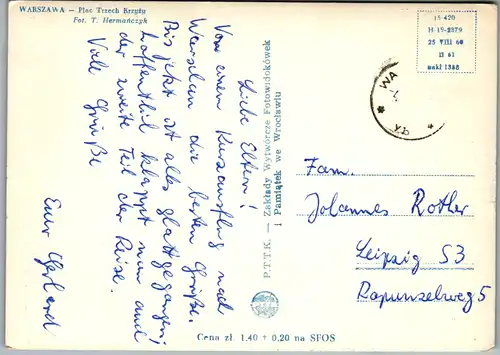 WARSZAWA — Plac Trzech Krzyży
Fot. T. Hermańczyk
Liebe Eltern!
Von einem Kurzausflug nach
Warschau die besten Grüße.
Bis jetzt ist alles glattgegangen;
hoffentlich klappt nun auch
der zweite Teil der Reise.
Viele Grüße
Euer Gerhard
P.T.T.K. — Zakłady Wytwórcze Fotowidokówek
i Pamiątek we Wrocławiu
H-19-2379
25 VIII 60
II 61
nakł 1388
WA
Fam.
Johannes Rother
Leipzig S3
Rapunzelweg 5
Cena zł. 1.40 + 0.20 na SFOS